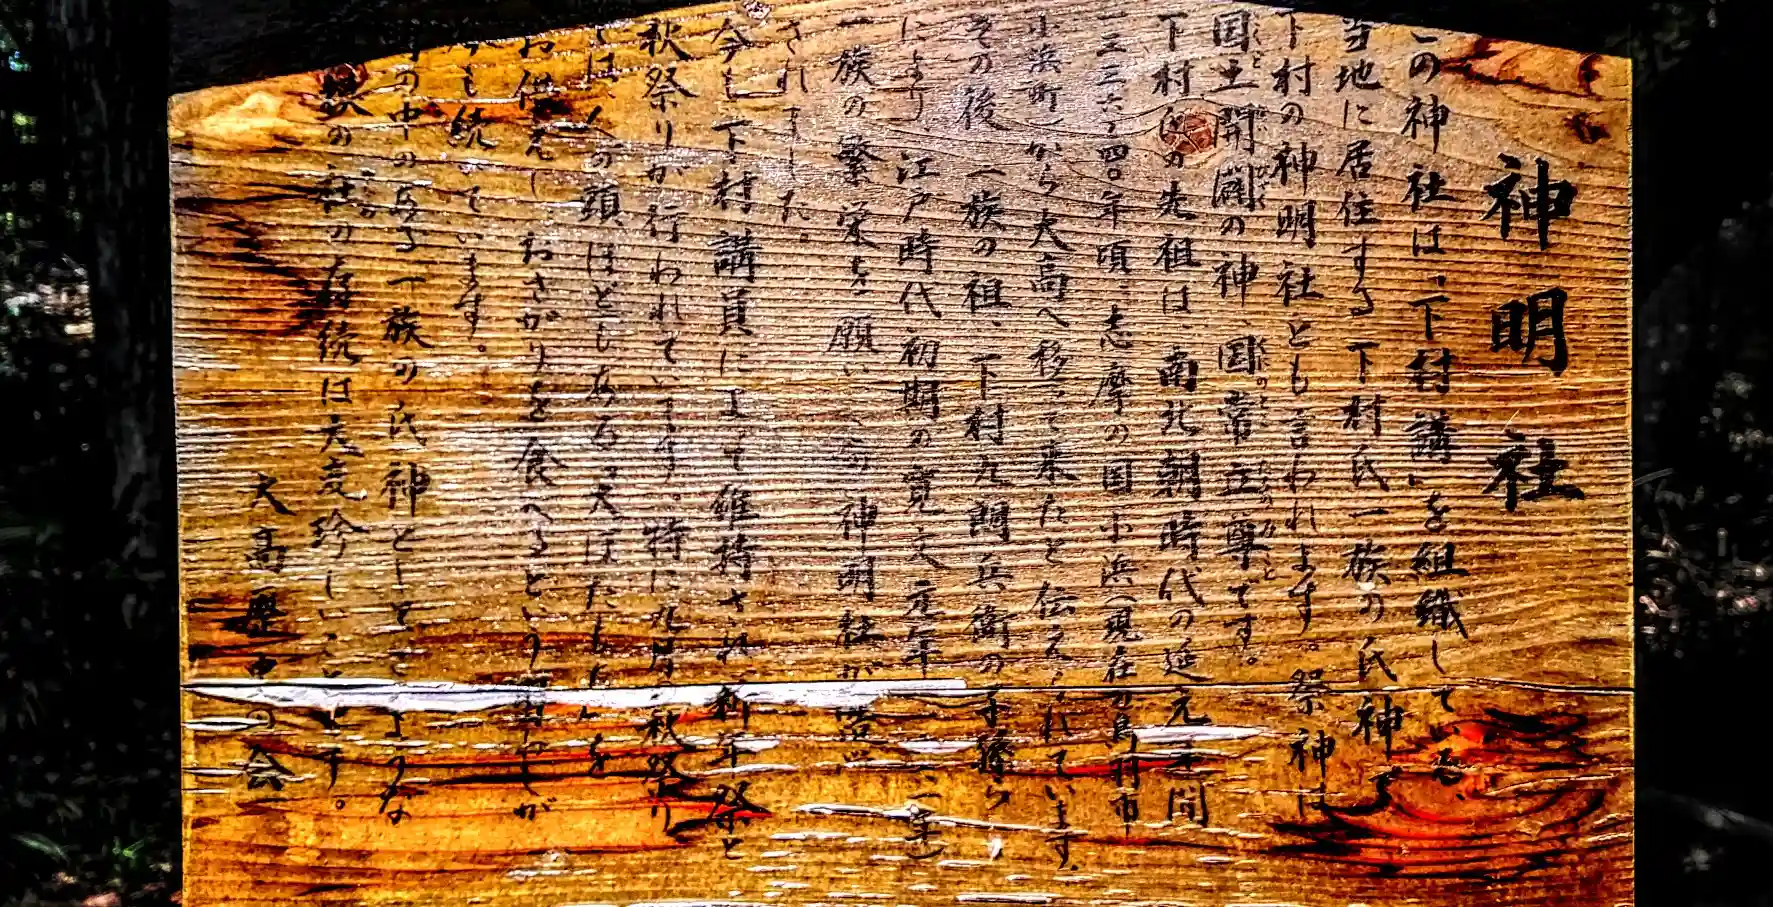 神明社
この神社は、下村講を組織している、
当地に居住する下村氏一族の氏神で
下村の神明社とも言われます。祭神は
国土開闢の神、国常立尊です。
下村氏の先祖は、南北朝時代の延元年間
一三三六〜四〇年頃、志摩の国小浜(現在の鳥羽市
小浜町)から大高へ移って来たと伝えられています。
その後、一族の祖、下村九郎兵衛の子孫ら
により、江戸時代初期の寛文元年
一族の繁栄を願い、神明社が
されました。
今も下村講員によって維持され、祈年祭と
秋祭りが行われています。特に九月の秋祭り
では、人の頭ほどもある大ぼたもちを
お供えし、おさがりを食べるという
今も続いています。
町の中のある一族の氏神としてこのような
の社の存続は大変珍しいことです。
大高歴史の会